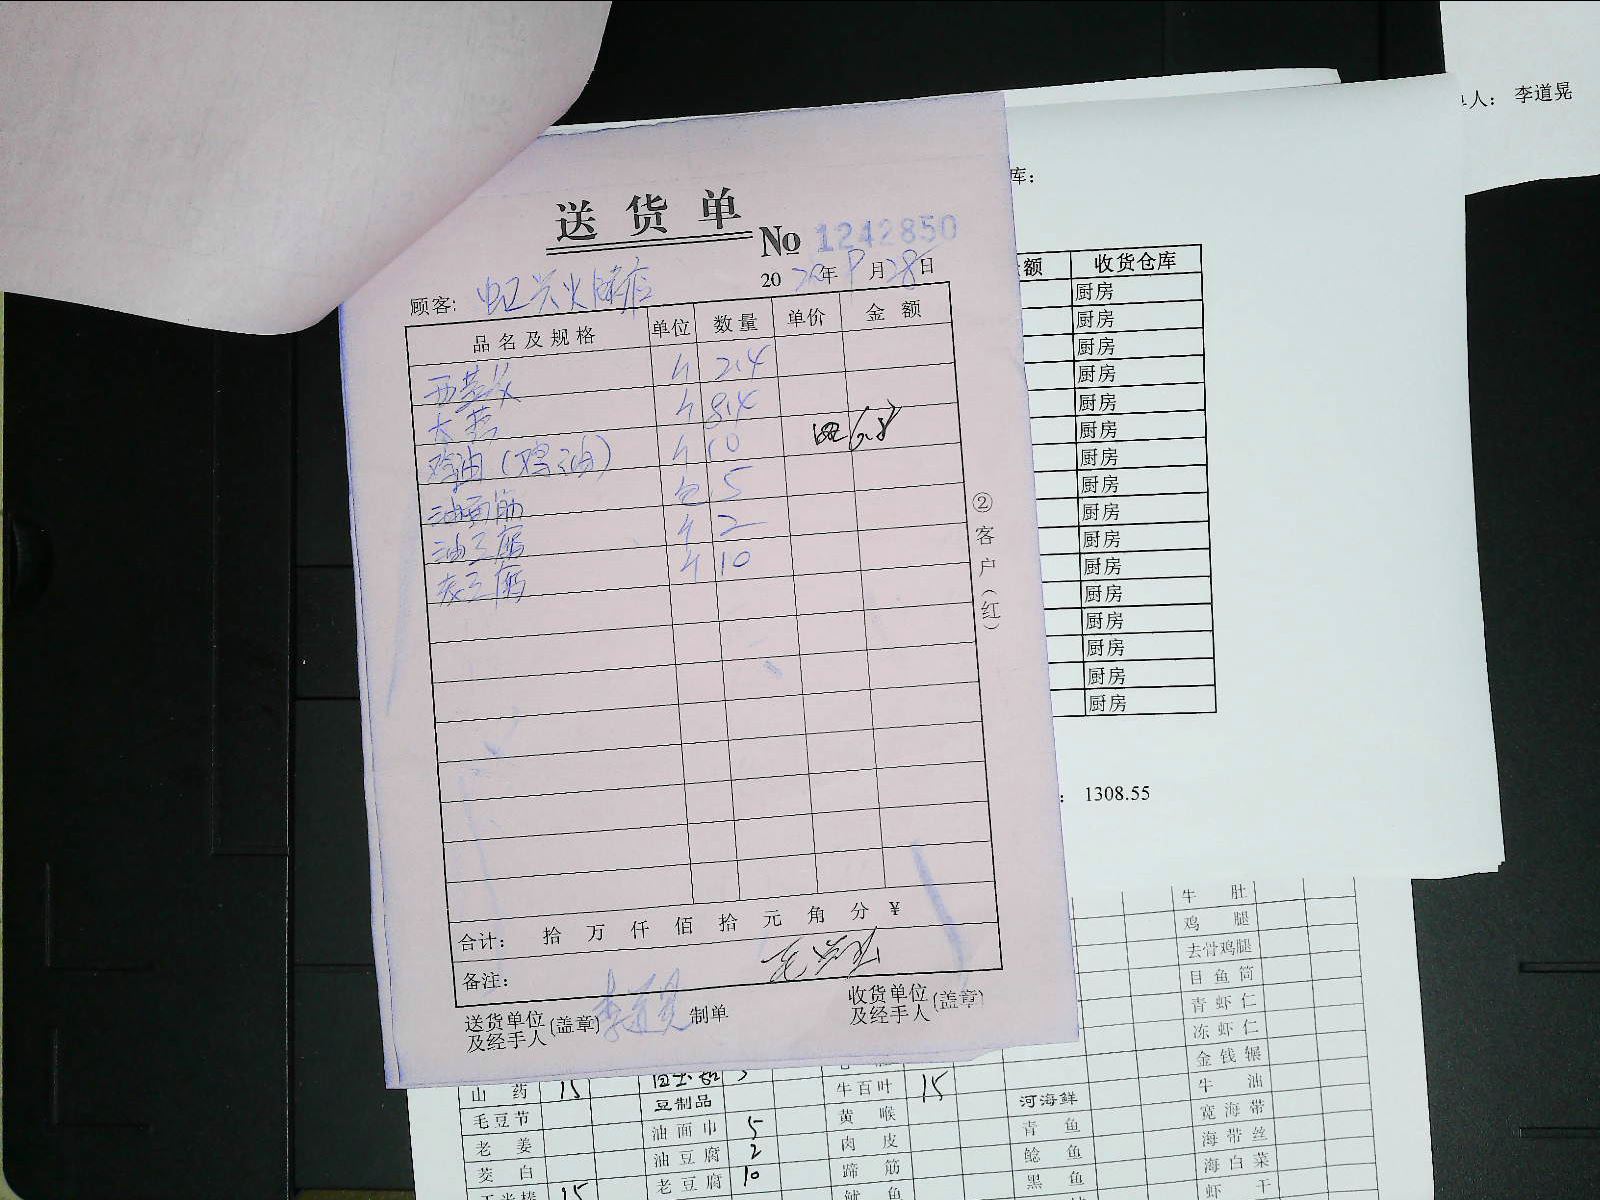 送货单
No 1242850
顾客: 虹兴火锅店 2022年9月28日
品名及规格 单位 数量 单价 金额
西芹 斤 2.4
大 斤 8.4
鸡油（鸡油） 斤 10
油面筋 包 5
油豆腐 斤 2
老豆腐 斤 10
②客户（红）
合计: 拾 万 仟 佰 拾 元 角 分 ¥
备注:
送货单位及经手人(盖章) 李道晃 制单 收货单位及经手人(盖章)
单人： 李道晃
库：
额 收货仓库
厨房
厨房
厨房
厨房
厨房
厨房
厨房
厨房
厨房
厨房
厨房
厨房
厨房
厨房
厨房
厨房
： 1308.55
牛肚
鸡腿
去骨鸡腿
目鱼筒
青虾仁
冻虾仁
金钱辗
山药 15 牛百叶 15 牛油
毛豆节 豆制品 黄喉 河海鲜 宽海带
老姜 油面巾 5 肉皮 青鱼 海带丝
茭白 油豆腐 2 蹄筋 鲶鱼 海白菜
玉米棒 15 老豆腐 10 鱼 黑鱼 虾干